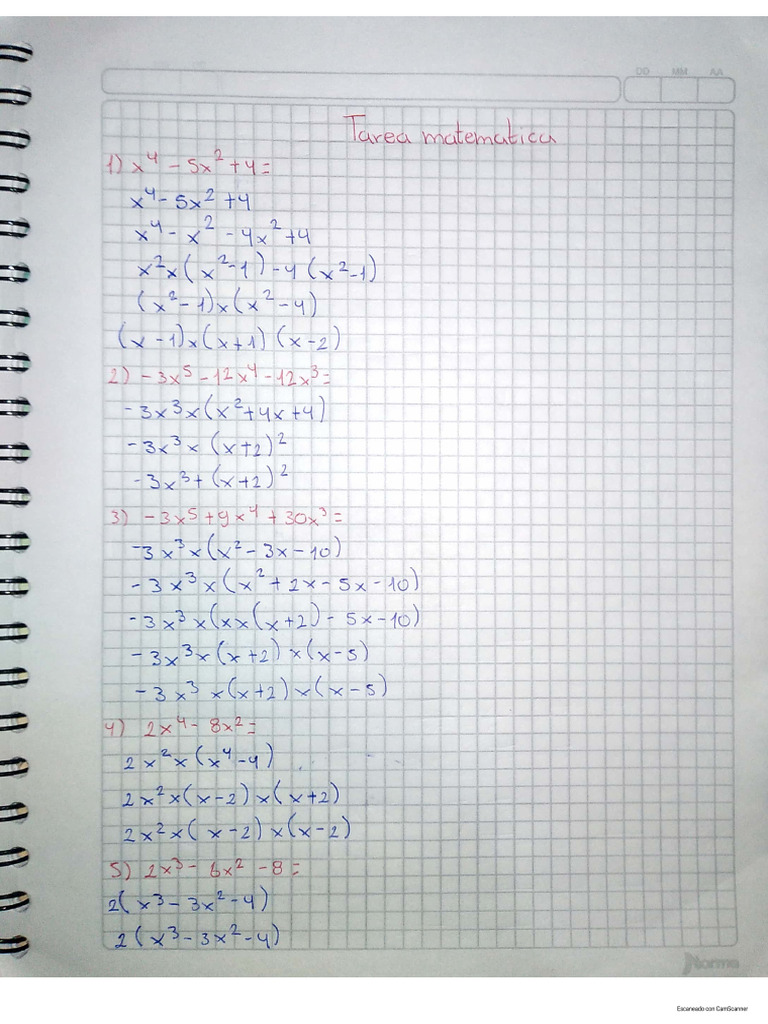 DD MM AA
Tarea matematica
1) x⁴ - 5x² + 4 =
x⁴ - 5x² + 4
x⁴ - x² - 4x² + 4
x² x (x² - 1) - 4 (x² - 1)
(x² - 1) x (x² - 4)
(x - 1) x (x + 1) (x - 2)
2) - 3x⁵ - 12x⁴ - 12x³ =
- 3x³ x (x² + 4x + 4)
- 3x³ x (x + 2)²
- 3x³ + (x + 2)²
3) - 3x⁵ + 9x⁴ + 30x³ =
- 3x³ x (x² - 3x - 10)
- 3x³ x (x² + 2x - 5x - 10)
- 3x³ x (xx (x + 2) - 5x - 10)
- 3x³ x (x + 2) x (x - 5)
- 3x³ x (x + 2) x (x - 5)
4) 2x⁴ - 8x² =
2x² x (x⁴ - 4)
2x² x (x - 2) x (x + 2)
2x² x (x - 2) x (x - 2)
5) 2x³ - 6x² - 8 =
2 (x³ - 3x² - 4)
2 (x³ - 3x² - 4)
Norma
Escaneado con CamScanner